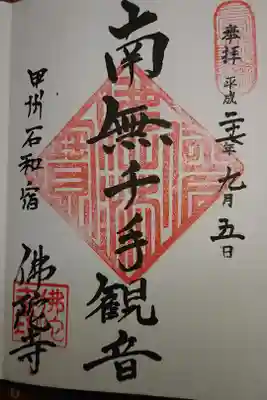 奉拝
平成二十六年九月五日
南無千手観音
甲州石和宿
佛陀寺